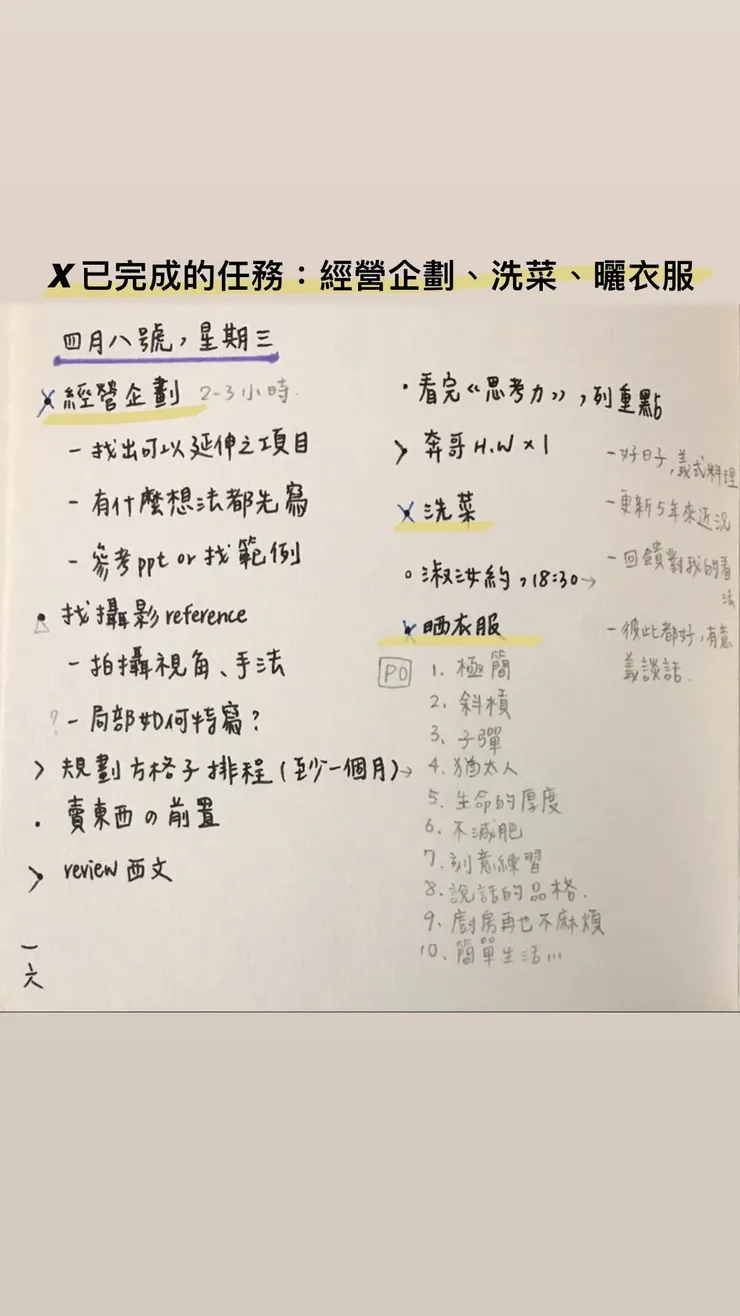 X 已完成的任務：經營企劃、洗菜、曬衣服
四月八號，星期三
X 經營企劃 2-3小時.
- 找出可以延伸之項目
- 有什麼想法都先寫
- 參考ppt or 找範例
找攝影 reference
- 拍攝視角、手法
? - 局部如何特寫?
> 規劃方格子排程(至少一個月)→
· 賣東西の前置
> review 西文
一六
· 看完《思考力》,列重點
> 奔哥 H.W × 1
X 洗菜
○ 淑汝約,18:30→
X 晒衣服
- 好日子,義式料理
- 更新5年來近況
- 回饋對我的看法
- 彼此都好,有意
義談話.
PO 1. 極簡
2. 斜槓
3. 子彈
4. 猶太人
5. 生命的厚度
6. 不減肥
7. 刻意練習
8. 說話的品格.
9. 廚房再也不麻煩
10. 簡單生活...